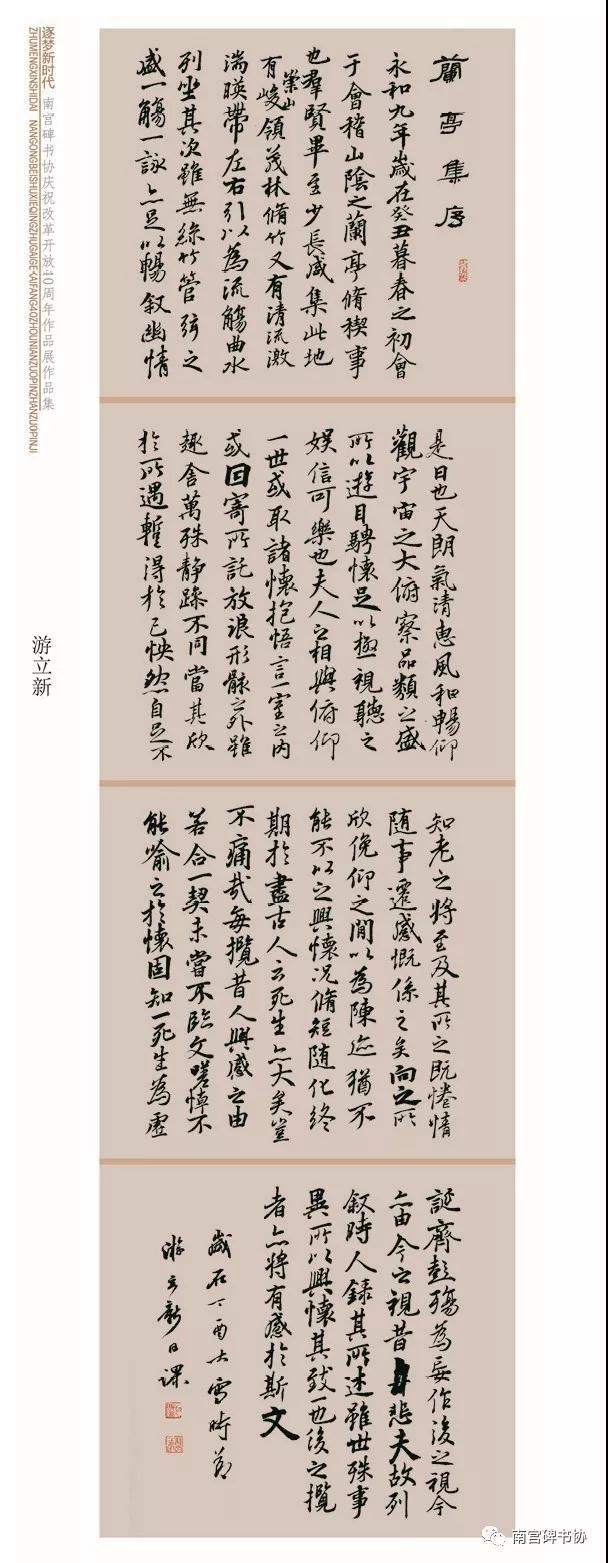 逐梦新时代 南宫碑书协庆祝改革开放40周年作品展作品集
ZHUMENGXINSHIDAI NANGONGBEISHUXIEQINGZHUGAIGEKAIFANG40ZHOUNIANZUOPINZHANZUOPINJI
游立新
蘭亭集序
永和九年歲在癸丑暮春之初會
于會稽山陰之蘭亭脩稧事
也羣賢畢至少長咸集此地
有崇山峻領茂林脩竹又有清流激
湍暎帶左右引以為流觴曲水
列坐其次雖無絲竹管弦之
盛一觴一詠亦足以暢叙幽情
是日也天朗氣清惠風和暢仰
觀宇宙之大俯察品類之盛
所以遊目騁懷足以極視聽之
娛信可樂也夫人之相與俯仰
一世或取諸懷抱悟言一室之內
或因寄所託放浪形骸之外雖
趣舍萬殊靜躁不同當其欣
於所遇暫得於己怏然自足不
知老之將至及其所之既惓情
隨事遷感慨係之矣向之所
欣俛仰之間以為陳迹猶不
能不以之興懷況脩短隨化終
期於盡古人云死生亦大矣豈
不痛哉每攬昔人興感之由
若合一契未嘗不臨文嗟悼不
能喻之於懷固知一死生為虛
誕齊彭殤為妄作後之視今
亦由今之視昔悲夫故列
叙時人錄其所述雖世殊事
異所以興懷其致一也後之攬
者亦將有感於斯文
歲在丁酉大雪時節
游立新日課
南宫碑书协